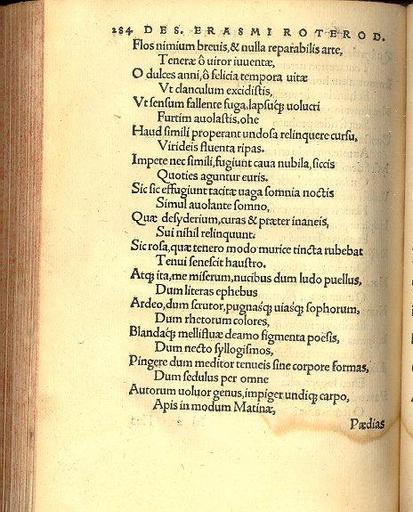 284 DES. ERASMI ROTEROD.
Flos nimium breuis, & nulla reparabilis arte,
Teneræ ô uiror iuuentæ,
O dulces anni, ô felicia tempora uitæ
Vt clanculum excidistis,
Vt sensum fallente fuga, lapsuq; uolucri
Furtim auolastis. ohe
Haud simili properant undosa relinquere cursu,
Virideis fluenta ripas.
Impete nec simili, fugiunt caua nubila, siccis
Quoties aguntur euris.
Sic sic effugiunt tacitæ uaga somnia noctis
Simul auolante somno,
Quæ desyderium, curas & præter inaneis,
Sui nihil relinquunt.
Sic rosa, quæ tenero modo murice tincta rubebat
Tenui senescit haustro.
Atq; ita, me miserum, nucibus dum ludo puellus,
Dum literas ephebus
Ardeo, dum scrutor, pugnasq; uiasq; sophorum,
Dum rhetorum colores,
Blandaq; mellifluæ deamo figmenta poësis,
Dum necto syllogismos,
Pingere dum meditor tenueis sine corpore formas,
Dum sedulus per omne
Autorum uoluor genus, impiger undiq; carpo,
Apis in modum Matinæ,
Pædias